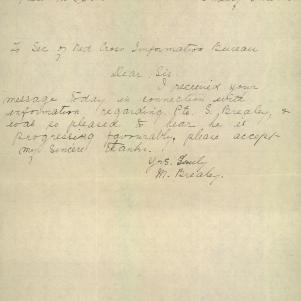 To Sec of Red Cross Information Bureau
Dear Sir
I received your
message today in connection with
information regarding Pte. S. Brealey, &
was so pleased to hear he is
progressing favourably, please accept
my sincere thanks.
Yrs. Truly
M. Brealey.